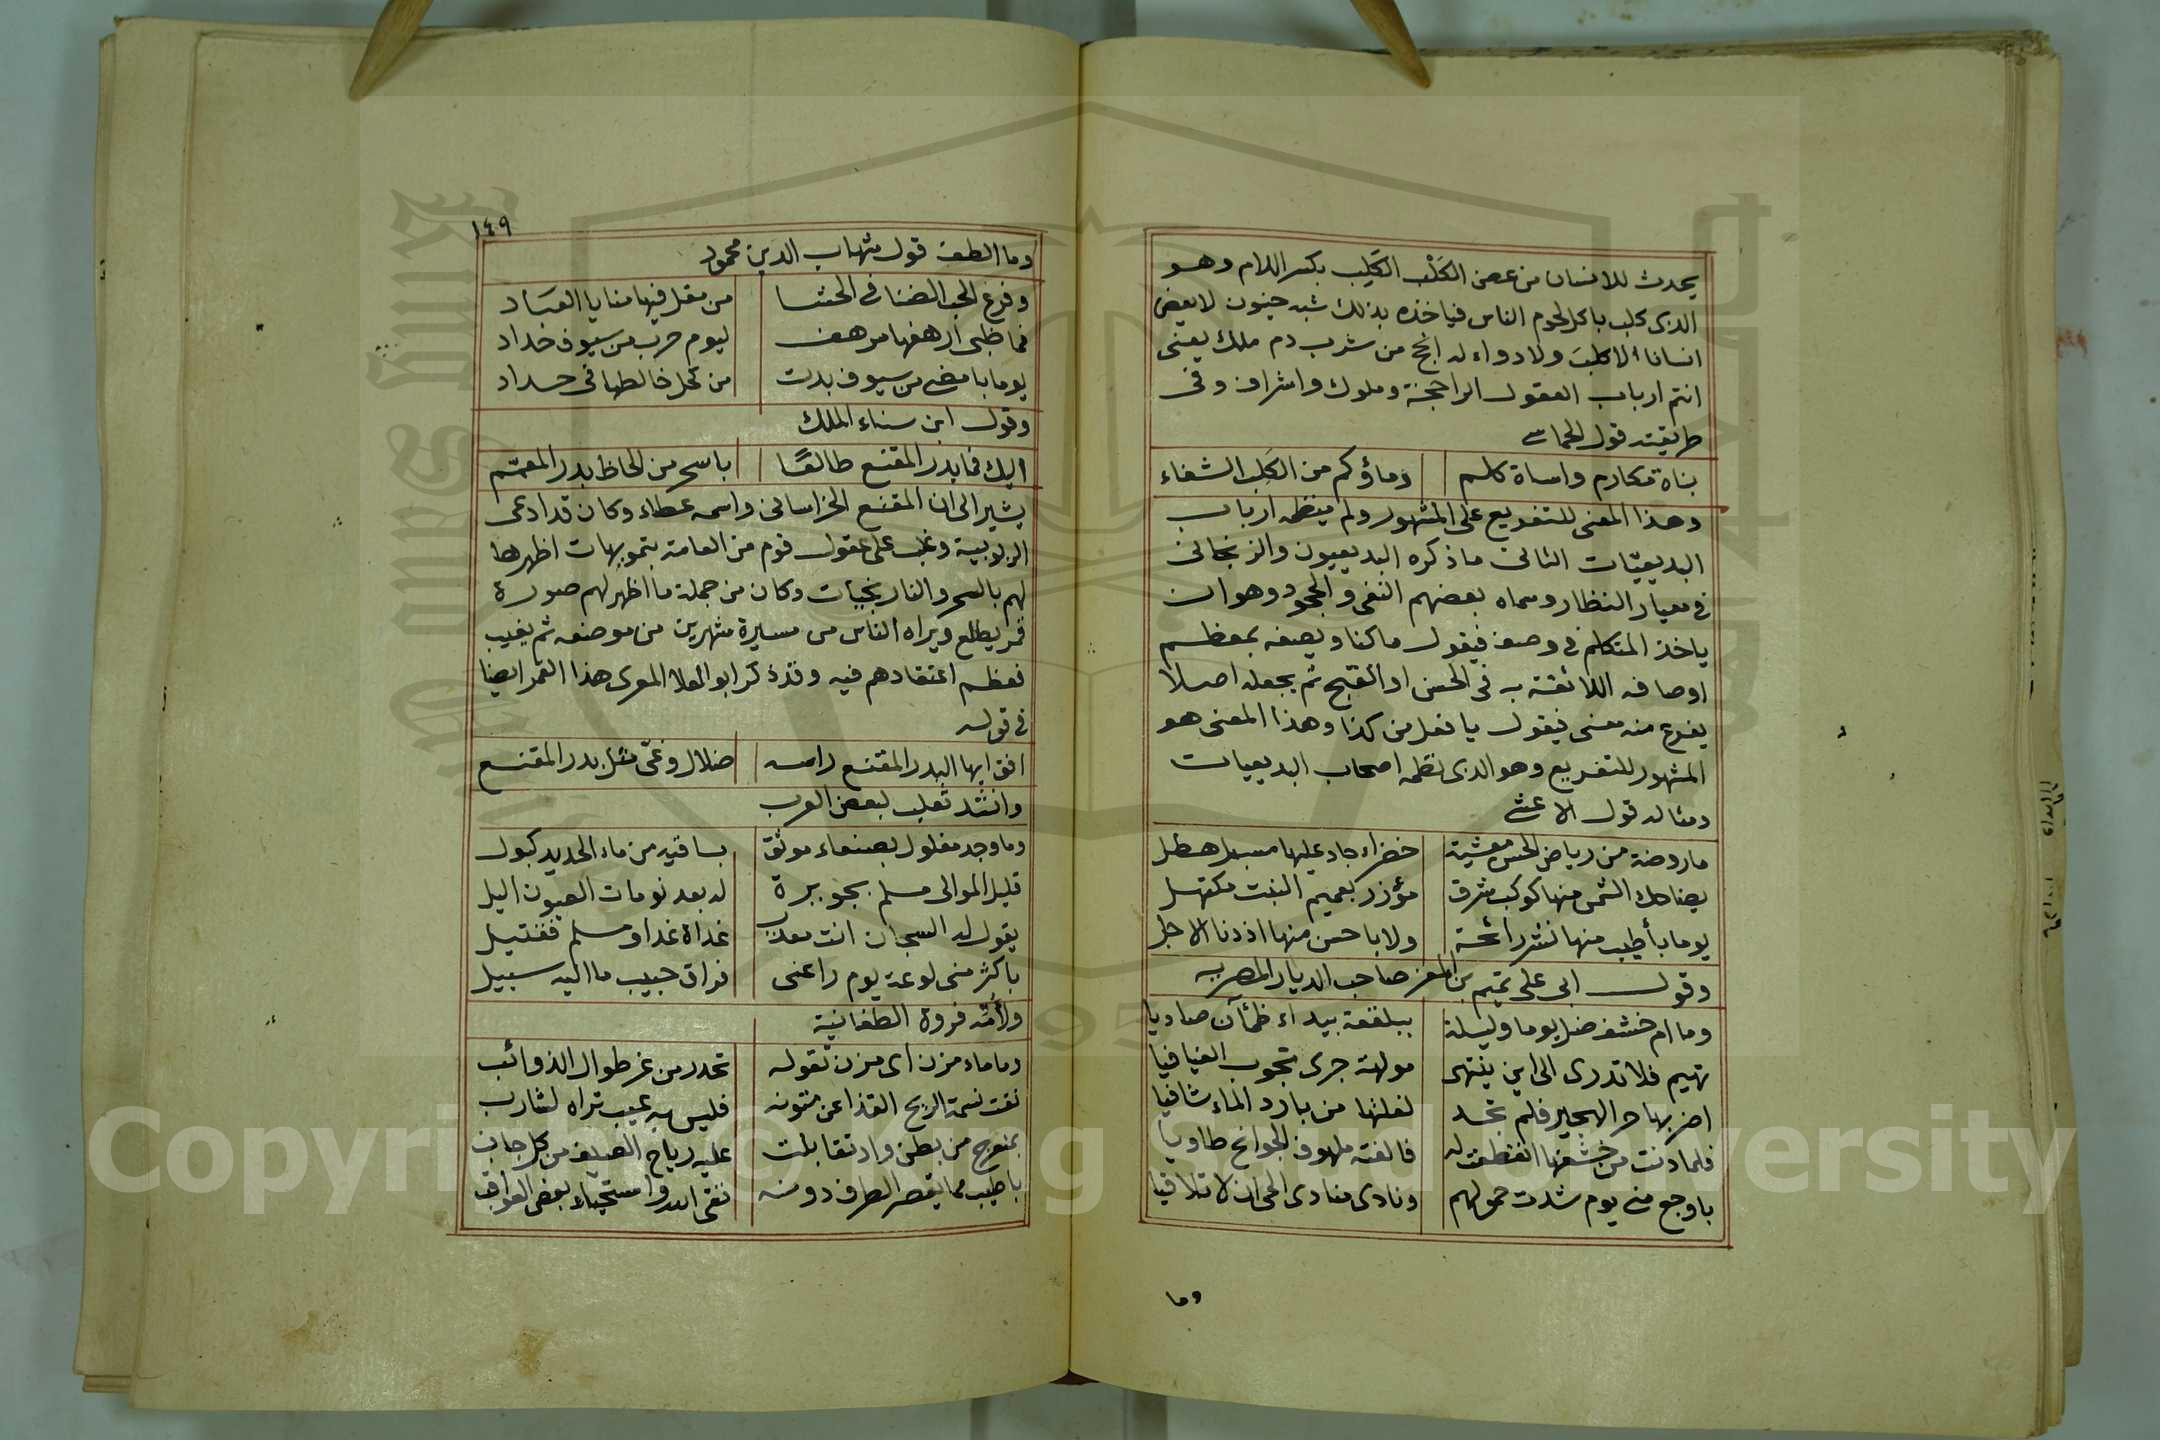 يحدث للانسان من عض الكَلْب الكَلِب بكسر اللام وهو
الذى كلب باكل لحوم الناس فياخذه بذلك شبه جنون لا يعض
انسانا الا كلب ولا دواء له انجح من شرب دم ملك يعنى
انتم ارباب العقول الراجحة وملوك واشراف وفى
طريقته قول الحماسى
بناة مكارم واساة كلم دماؤكم من الكَلَب الشفاء
وهذا المعنى للتفريع على المشهور ولم ينظمه ارباب
البديعيّات الثانى ما ذكره البديعيون والزنجانى
فى معيار النظار وسماه بعضهم النفى والجحود وهو ان
ياخذ المتكلم فى وصف فيقول ما كذا ويصفه بمعظم
اوصافه اللائقة به فى الحسن او القبح ثم يجعله اصلا
يفرع منه معنى فيقول بافعل من كذا وهذا المعنى هو
المشهور للتفريع وهو الذى نظمه اصحاب البديعيات
ومثاله قول الاعشى
ما روضة من رياض الحسن معشبة خضراء جاد عليها مسبل هطل
يضاحك الشمس منها كوكب شرق مؤزر بعميم النبت مكتهل
يوما بأطيب منها نشر رائحة ولا باحسن منها اذ دنا الاجل
وقول ابى على تميم بن المعز صاحب الديار المصريه
وما ام خشف ضل يوما وليلة ببلقعة بيداء ظمأن صاديا
تهيم فلا تدرى الى اين ينتهى مولهة جرى تجوب الفيافيا
اضر بها حر الهجير فلم تجد لغلتها من بارد الماء شافيا
فلما دنت من خشفها انعطفت له فالفته ملهوف الجوانح طاويا
باوجع منى يوم شدت حمولهم ونادى منادى الحى ان لا تلاقيا
وما
١٤٩
وما الطف قول شهاب الدين محمود
وفرغ الحب الضنا فى الحشا من مقل فيها منايا العباد
فما ظبى ارهفها مرهف ليوم حرب من سيوف حداد
يوما بامضى من سيوف بدت من كحل خالطها فى حداد
وقول ابن سناء الملك
اليك فما بدر المقنع طالعًا باسحر من الحاظ بدر المعمّم
يشير الى ان المقنع الخراسانى واسمه عطاء وكان قد ادعى
الربوبية وغلب على عقول قوم من العامة بتمويهات اظهرها
لهم بالسحر والنارنجيات وكان من جملة ما اظهر لهم صورة
قمر يطلع ويراه الناس من مسيرة شهرين من موضعه ثم يغيب
فعظم اعتقادهم فيه وقد ذكر ابو العلا المعرى هذا القمر ايضا
فى قوله
افق ايها البدر المقنع راسه ضلال وغىّ مثل بدر المقنع
وانشد ثعلب لبعض العرب
وما وجد مغلول بصنعاء موثق بساقيه من ماء الحديد كبول
قليل الموالى مسلم بجريرة له بعد نومات العيون اليل
يقول له السجان انت معذب غداة غدا ومسلم فقتيل
باكثر منى لوعة يوم راعنى فراق حبيب ما اليه سبيل
ولأمّه فروة الطغانية
وما ماء مزن اى مزن تقوله تحدر من غر طوال الذوائب
نفت نسمة الريح القذا عن متونه فليس به عيب تراه لشارب
بمنعرج من بطن واد تقابلت عليه رياح الصيف من كل جانب
باطيب مما يقصر الطرف دونه تقى الله واستحياء بعض العواقب